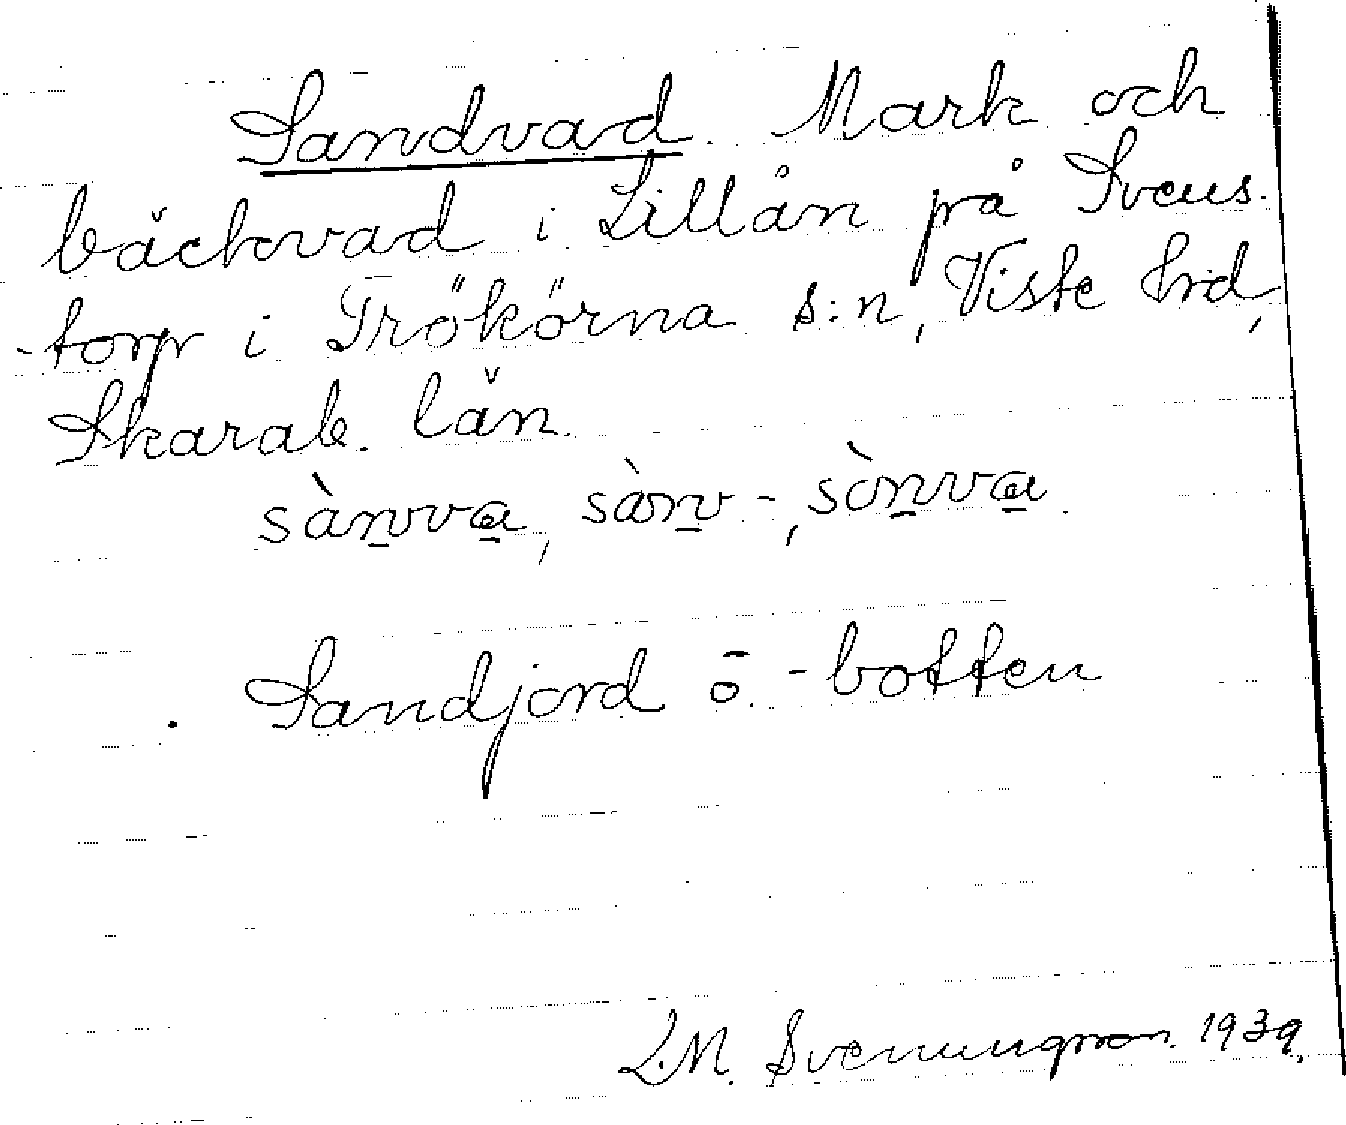 Sandvad. Mark och
bäckvad i Lillån på Svens-
-torp i Trökörna s:n, Viste hrd,
Skarab. län.
sànvva, sànv-, sònvva.
Sandjord o. -botten
L.M. Svenungsson 1939.